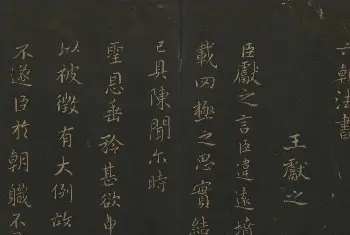 六朝法書
王獻之
臣獻之言臣違遠墳
載罔極之思實結
已具陳聞尓時
聖恩垂矜甚欲申
以被徵有大例故
不遂臣於朝職不